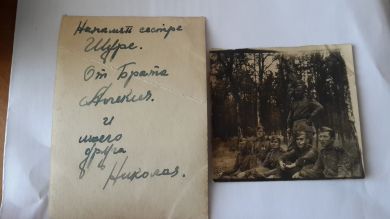 На память сестре
Шуре.
От Брата
Алексея.
и
моего
друга
Николая.